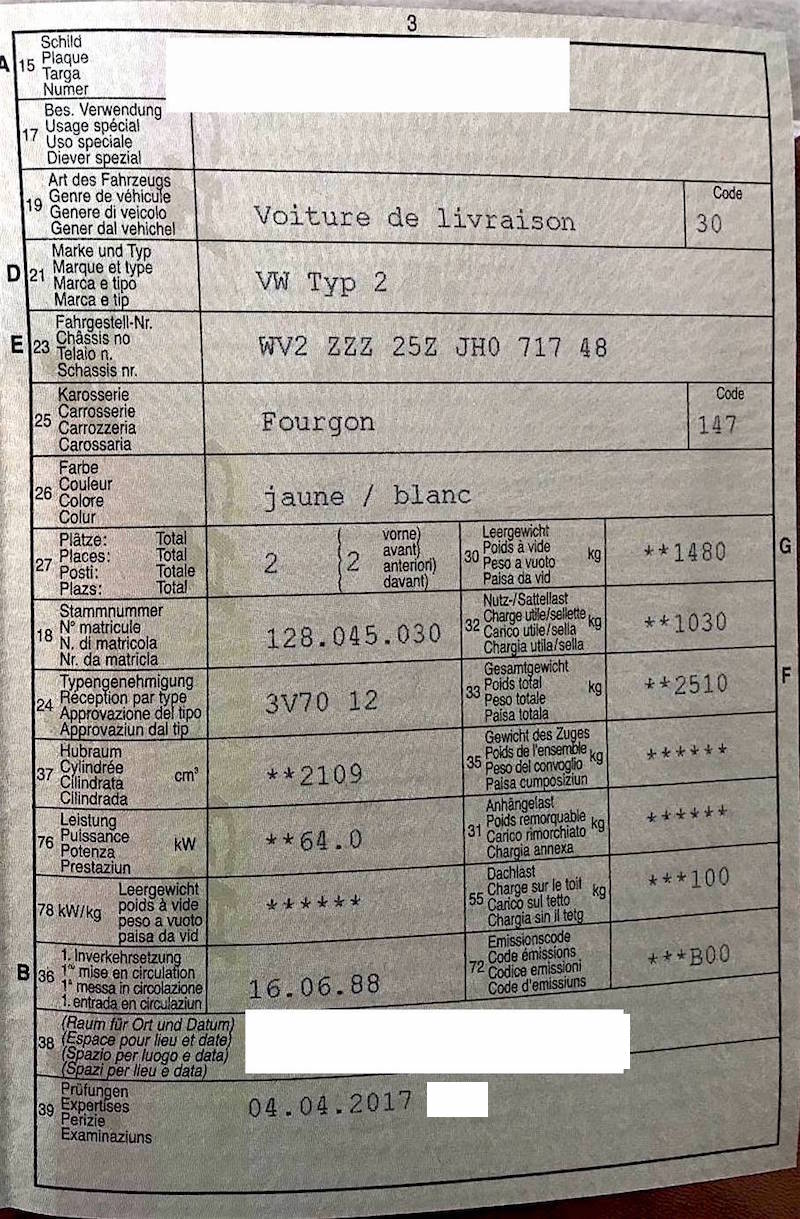 3
A 15 Schild
Plaque
Targa
Numer
17 Bes. Verwendung
Usage spécial
Uso speciale
Diever spezial
19 Art des Fahrzeugs
Genre de véhicule
Genere di veicolo
Gener dal vehichel
Voiture de livraison
Code
30
D 21 Marke und Typ
Marque et type
Marca e tipo
Marca e tip
VW Typ 2
E 23 Fahrgestell-Nr.
Châssis no
Telaio n.
Schassis nr.
WV2 ZZZ 25Z JH0 717 48
25 Karosserie
Carrosserie
Carrozzeria
Carossaria
Fourgon
Code
147
26 Farbe
Couleur
Colore
Colur
jaune / blanc
27 Plätze: Total
Places: Total
Posti: Totale
Plazs: Total
2 ( 2 vorne)
avant)
anteriori)
davant)
30 Leergewicht
Poids à vide kg
Peso a vuoto
Paisa da vid
**1480
G
18 Stammnummer
N° matricule
N. di matricola
Nr. da matricla
128.045.030
32 Nutz-/Sattellast
Charge utile/sellette kg
Carico utile/sella
Chargia utila/sella
**1030
24 Typengenehmigung
Réception par type
Approvazione del tipo
Approvaziun dal tip
3V70 12
33 Gesamtgewicht
Poids total kg
Peso totale
Paisa totala
**2510
F
37 Hubraum
Cylindrée cm³
Cilindrata
Cilindrada
**2109
35 Gewicht des Zuges
Poids de l'ensemble kg
Peso del convoglio
Paisa cumposiziun
******
76 Leistung
Puissance kW
Potenza
Prestaziun
**64.0
31 Anhängelast
Poids remorquable kg
Carico rimorchiato
Chargia annexa
******
78 kW/kg Leergewicht
poids à vide
peso a vuoto
paisa da vid
******
55 Dachlast
Charge sur le toit kg
Carico sul tetto
Chargia sin il tetg
***100
B 36 1. Inverkehrsetzung
1re mise en circulation
1a messa in circolazione
1. entrada en circulaziun
16.06.88
72 Emissionscode
Code émissions
Codice emissioni
Code d'emissiuns
***B00
38 (Raum für Ort und Datum)
(Espace pour lieu et date)
(Spazio per luogo e data)
(Spazi per lieu e data)
39 Prüfungen
Expertises
Perizie
Examinaziuns
04.04.2017